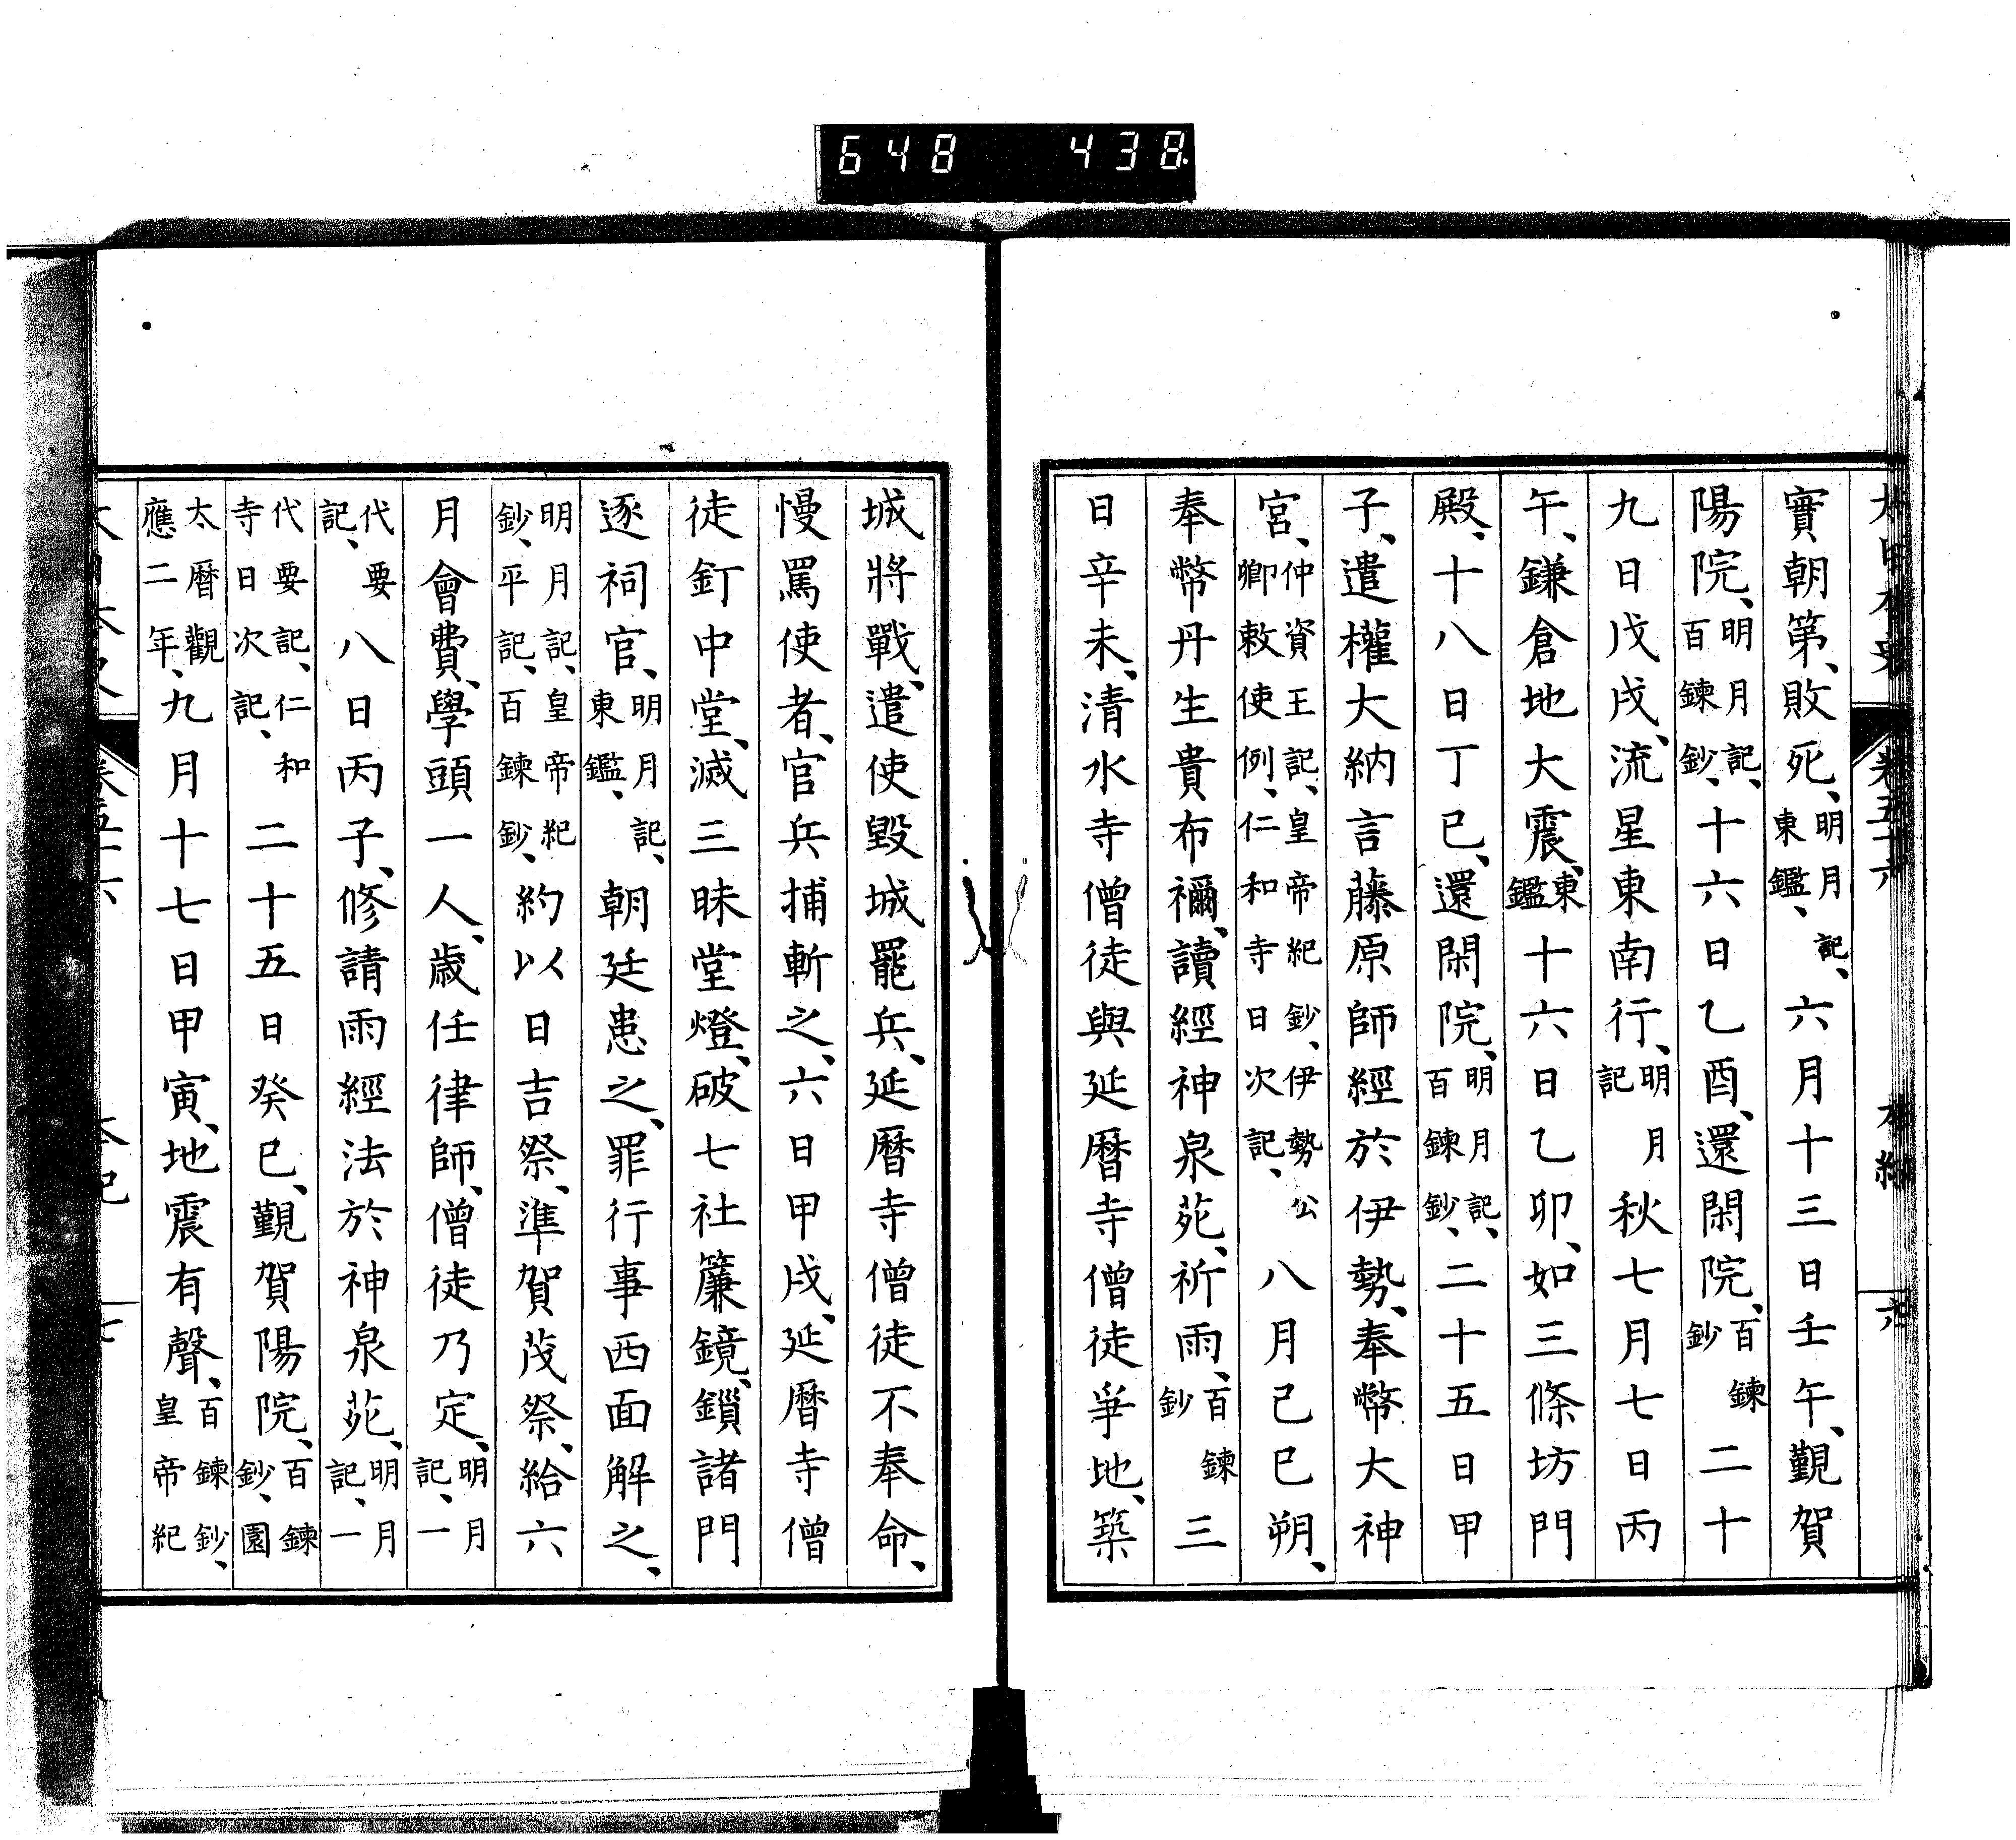 648 438
大日本史 卷五十六 本紀 六
實朝第、敗死、明月記、東鑑、六月十三日壬午、覲賀
陽院、明月記、百鍊鈔、十六日乙酉、還閑院、百鍊鈔二十
九日戊戌、流星東南行、明月記秋七月七日丙
午、鎌倉地大震、東鑑十六日乙卯、如三條坊門
殿、十八日丁巳、還閑院、明月記、百鍊鈔、二十五日甲
子、遣權大納言藤原師經於伊勢、奉幣大神
宮、仲資王記、皇帝紀鈔、伊勢公卿敕使例、仁和寺日次記、八月己巳朔、
奉幣丹生貴布禰、讀經神泉苑、祈雨、百鍊鈔三
日辛未、清水寺僧徒與延曆寺僧徒爭地、築
城將戰、遣使毀城罷兵、延曆寺僧徒不奉命、
慢罵使者、官兵捕斬之、六日甲戌、延曆寺僧
徒釘中堂、滅三昧堂燈、破七社簾鏡、鎖諸門
逐祠官、明月記、東鑑、朝廷患之、罪行事西面解之、
明月記、皇帝紀鈔、平記、百鍊鈔、約以日吉祭、準賀茂祭、給六
月會費、學頭一人、歲任律師、僧徒乃定、明月記、一
代要記、八日丙子、修請雨經法於神泉苑、明月記、一
代要記、仁和寺日次記、二十五日癸巳、覲賀陽院、百鍊鈔、園
太曆觀應二年、九月十七日甲寅、地震有聲、百鍊鈔、皇帝紀